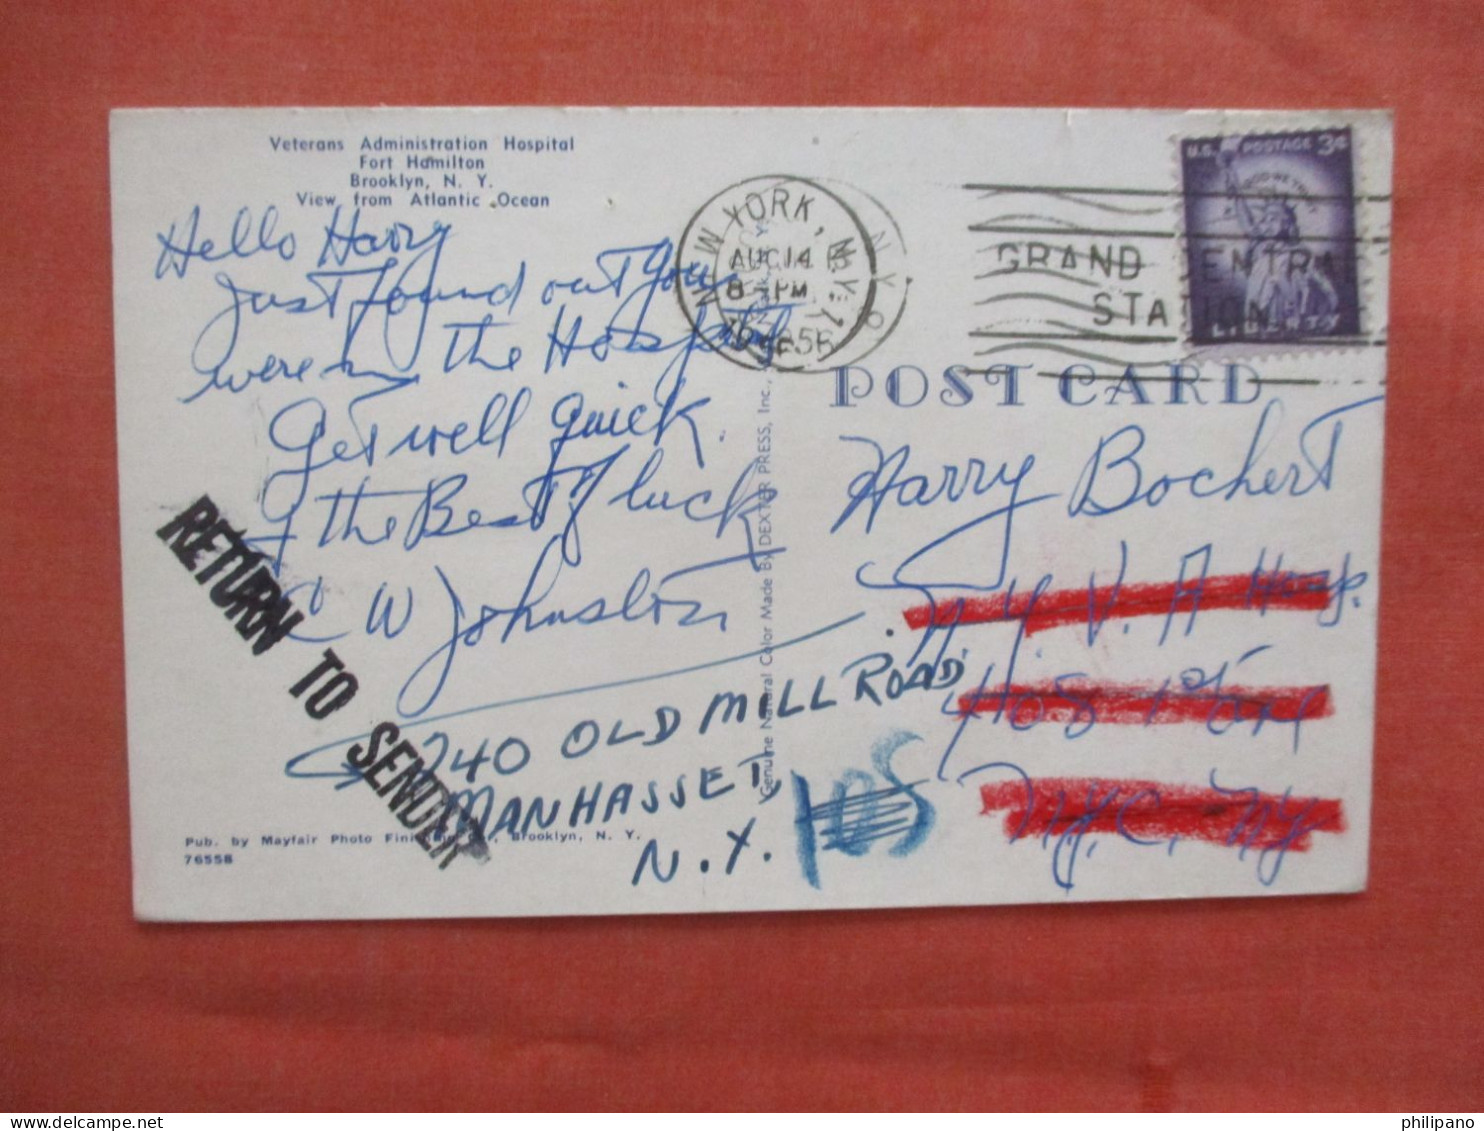 Veterans Administration Hospital
Fort Hamilton
Brooklyn, N. Y.
View from Atlantic Ocean
Hello Harry
Just found out you
were in the Hospital
Get well quick
& the Best of luck
C W Johnston
740 OLD MILL ROAD
MANHASSET,
N.Y.
105
RETURN TO SENDER
Pub. by Mayfair Photo Finishing Co., Brooklyn, N. Y.
76558
Genuine Natural Color Made By DEXTER PRESS, Inc.,
NEW YORK, N.Y. 1
AUG 14
8 PM
1956
GRAND CENTRAL
STATION
U.S. POSTAGE 3¢
IN GOD WE TRUST
LIBERTY
POST CARD
Harry Bochert
N.Y. V. A Hosp.
408 1st Ave
N.Y.C. NY
philipano